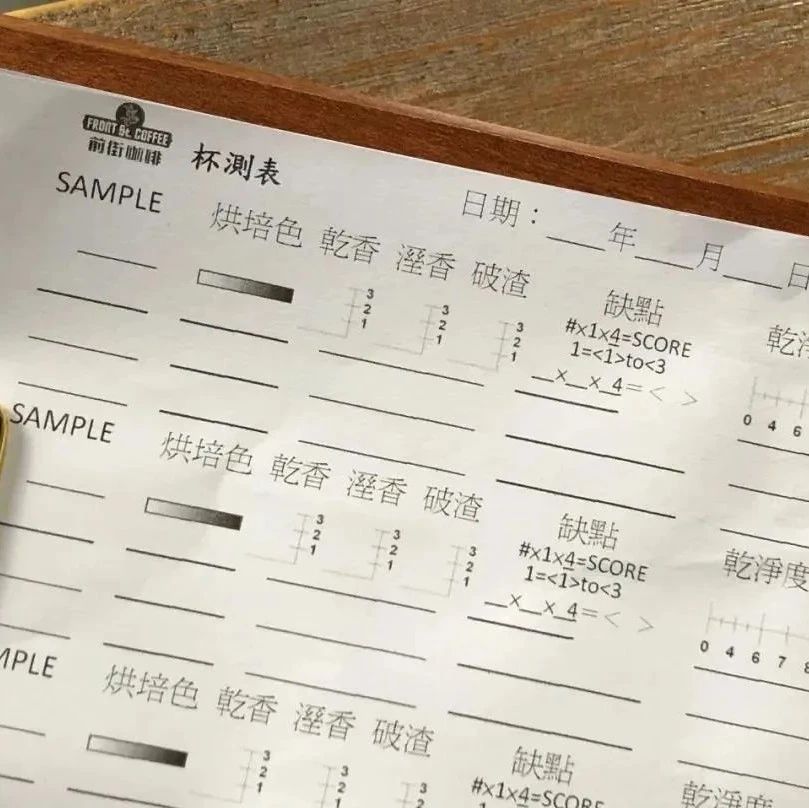 FRONT St. COFFEE
前街咖啡
杯測表
日期：___年___月___日
SAMPLE 烘培色 乾香 溼香 破渣 缺點 乾淨
3 3 3
2 2 2
1 1 1
#x1x4=SCORE
1=<1>to<3
__x__x_4=< >
0 4 6
SAMPLE 烘培色 乾香 溼香 破渣 缺點 乾淨度
3 3 3
2 2 2
1 1 1
#x1x4=SCORE
1=<1>to<3
__x__x_4=< >
0 4 6 7 8
MPLE 烘培色 乾香 溼香 破渣 缺點 乾淨度
3 3 3
2 2 2
1
#x1x4=SCORE